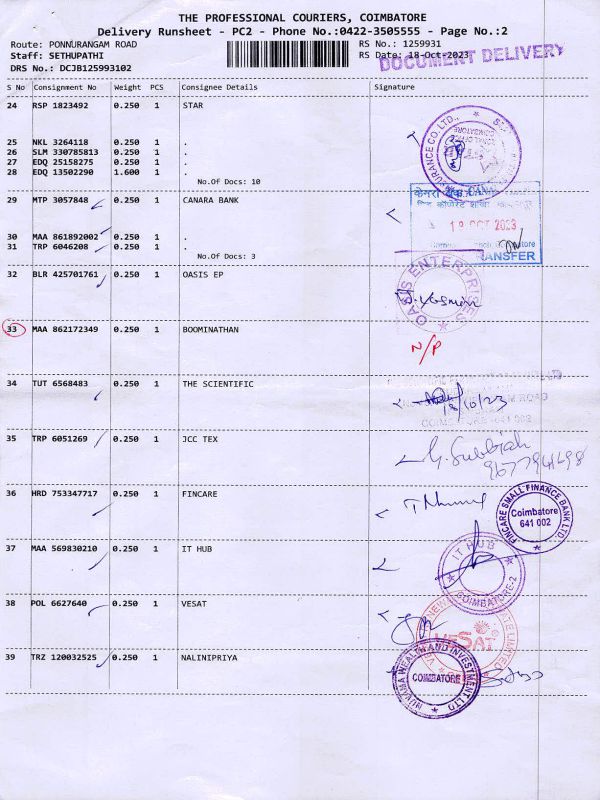 THE PROFESSIONAL COURIERS, COIMBATORE
Delivery Runsheet - PC2 - Phone No.:0422-3505555 - Page No.:2
Route: PONNURANGAM ROAD RS No.: 1259931
Staff: SETHUPATHI RS Date: 18-Oct-2023
DRS No.: DCJB125993102
DOCUMENT DELIVERY
S No Consignment No Weight PCS Consignee Details Signature
24 RSP 1823492 0.250 1 STAR
25 NKL 3264118 0.250 1 .
26 SLM 330785813 0.250 1 .
27 EDQ 25158275 0.250 1 .
28 EDQ 13502290 1.600 1 .
No.Of Docs: 10
29 MTP 3057848 0.250 1 CANARA BANK
18 OCT 2023
TRANSFER
30 MAA 861892002 0.250 1 .
31 TRP 6046208 0.250 1 .
No.Of Docs: 3
32 BLR 425701761 0.250 1 OASIS EP
OASIS ENTERPRISES
33 MAA 862172349 0.250 1 BOOMINATHAN
N/P
34 TUT 6568483 0.250 1 THE SCIENTIFIC
18/10/23
35 TRP 6051269 0.250 1 JCC TEX
G. Subbiah
36 HRD 753347717 0.250 1 FINCARE
FINCARE SMALL FINANCE BANK LTD.
Coimbatore
641 002
37 MAA 569830210 0.250 1 IT HUB
IT HUB
COIMBATORE-2
38 POL 6627640 0.250 1 VESAT
VESAT
39 TRZ 120032525 0.250 1 NALINIPRIYA
NUVAMA WEALTH AND INVESTMENT LTD
COIMBATORE